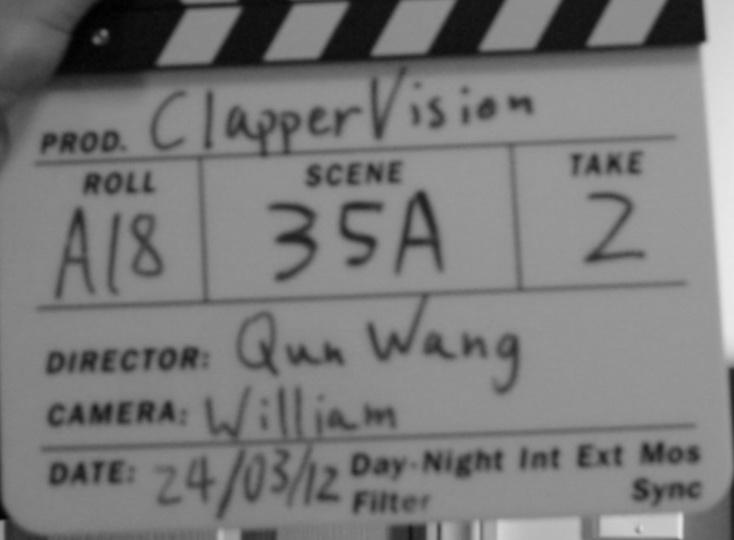 PROD. ClapperVision
ROLL SCENE TAKE
A18 35A 2
DIRECTOR: Qun Wang
CAMERA: William
DATE: 24/03/12 Day-Night Int Ext Mos
Filter Sync